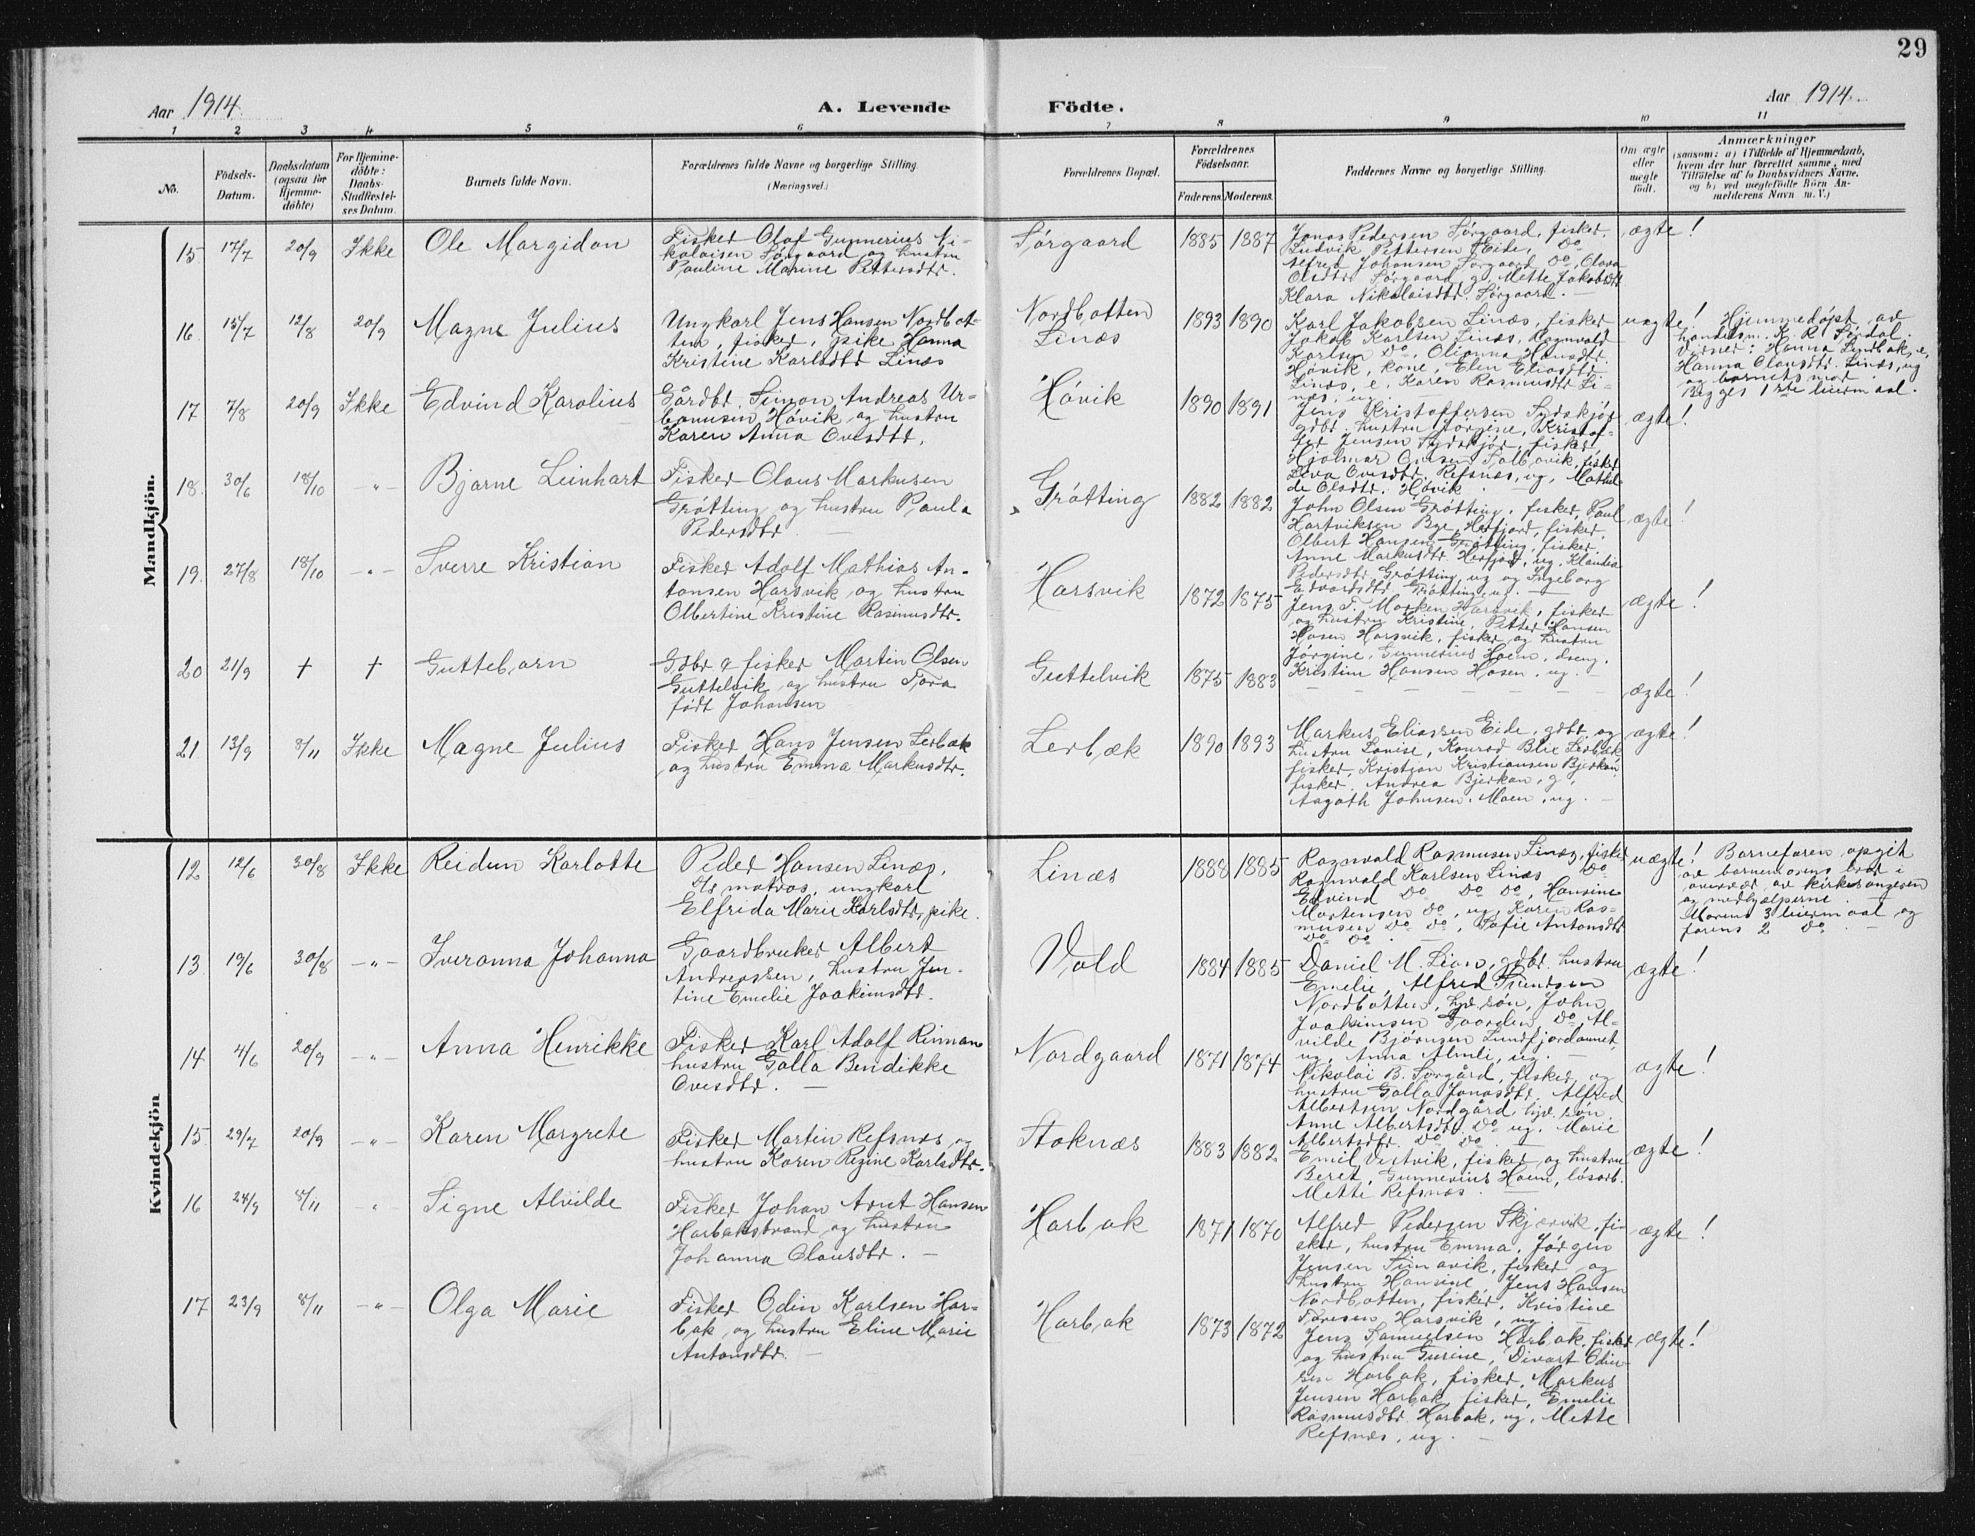 29
Aar 1914. A. Levende Födte. Aar 1914.
1 2 3 4 5 6 7 8 9 10 11
No. Födsels-Datum. Daabsdatum (ogsaa for Hjemme-döbte) For Hjemme-döbte: Daabs-Stadfæstel-ses Datum. Barnets fulde Navn. Forældrenes fulde Navne og borgerlige Stilling. (Næringsvei.) Forældrenes Bopæl. Forældrenes Födselsaar. Faderens. Moderens. Faddernes Navne og borgerlige Stilling. Om ægte eller uægte födt. Anmærkninger (saasom: a) i Tilfælde af Hjemmedaab, hvem der har forrettet samme, med Tilföielse af to Daabsvidners Navne, og b) ved uægtefödte Börn An-melderens Navn m. V.)
Mandkjön.
15 17/7 20/9 Ikke Ole Margidon
Fisker Olaf Gunnerius Ni-
kolaisen Sørgaard og hustru
Pauline Marine Pettersdtr.
Sørgaard 1885 1887
Jonas Pedersen Sørgaard, fisker
Ludvik Pettersen Eide, Do
Alfred Johansen Sørgaard Do, Olava
Olsdtr Sørgaard g, Mette Jakobsdtr
Klara Nikolaisdtr. Sørgaard. —
ægte!
16. 15/7 12/8 20/9 Magne Julius
Ungkarl Jens Hansen Nordbot-
ten, fisker, pike Hanna
Kristine Karlsdtr Linæs
Nordbotten
Linæs
1893 1890
Karl Jakobsen Linæs, fisker
Jakob Karlsen Linæs, Ragnvald
Karlsen Do, Olianna Hansdtr.
Høvik, kone, Elen Eliasdtr
Linæs, e, Karen Rasmusdtr Li-
næs, ug.
uægte!
Hjemmedøpt av
handelsm. K. R. Sørdal.
Vidner: Hanna Lindbak, e,
Hanna Olausdtr. Linæs, ug
og barnets mor.
Begges 1ste leiermaal.
17 7/8 20/9 Ikke Edvind Karolius
Gårdbr. Simon Andreas Ur-
banusen Høvik og hustru
Karen Anna Ovesdtr.
Høvik 1890 1891
Jens Kristoffersen Sydskjør
gdbr. hustru Jørgine, Kristof-
fer Jensen Sydskjør, fisker
Hjalmar Ovesen, fisker
Lova Ovesdtr Refsnæs, ug, Mathil-
de Olsdtr. Høvik
ægte!
18. 30/6 18/10 — " — Bjarne Leinhart
Fisker Olaus Markusen
Grøtting og hustru Paula
Pedersdtr —
Grøtting 1882 1882
John Olsen Grøtting, fisker, Paul
Hartviksen Bye, Herfjord, fisker,
Olbert Hansen Grøtting, fisker
Anne Markusdtr Herfjord, ug, Klaudia
Pedersdtr Grøtting, ug og Ingeborg
Edvardsdtr Grøtting, ug. —
ægte!
19. 27/8 18/10 — " — Sverre Kristian
Fisker Adolf Mathias An-
tonsen Harsvik og hustru
Olbertine Kristine Rasmusdtr.
Harsvik 1872 1875
Jens F. Morken Harsvik, fisker
og hustru Kristine, Petter Hansen
Hosen Harsvik, fisker og hustru
Jørgine, Gunnerius Hoem, dreng,
Kristine Hansen Hosen, ug.
ægte!
20 21/9 † † Guttebarn
Gdbr & fisker Martin Olsen
Guttelvik og hustru Tora
født Johansen
Guttelvik 1875 1883
— — — — —
ægte!
21. 13/9 8/11 Ikke Magne Julius
Fisker Hans Jensen Lerbæk
og hustru Emma Markusdtr.
Lerbæk 1890 1893
Markus Eliassen Eide, gdbr og
hustru Lovise, Konrad Blix Lerbæk
fisker, Kristian Kristiansen Bjerkan
fisker, Andrea Bjerkan, g,
Aagoth Johnsen, Moen, ug. —
ægte!
Kvindekjön
12 12/6 30/8 Ikke Reidun Karlotte
Peder Hansen Linæs,
matros, ungkarl
Elfrida Marie Karlsdtr, pike.
Linæs 1888 1885
Ragnvald Rasmussen Linæs, fisker
Ragnvald Karlsen Linæs Do
Edvind Do Do Do, Hansine
Mortensen Do, ug, Karen Ras-
musen Do Do, Sofie Antonsdtr
Do Do. —
uægte!
Barnefaren opgit
av barnemorens bror i
overvær av kirkesangeren
og medhjælperne. —
Morens 3 leiermaal og
farens 2 Do. —
13 19/6 30/8 — " — Iveranna Johanna
Gaardbruker Albert
Andreassen, hustru Jen-
tine Emelie Joakimsdtr.
Vold 1884 1885
Daniel M. Lian, gdbr. hustru
Emelie, Alfred
Nordbotten, hjv søn, John
Joakimsen Gaarden, Do, Al-
vilde Bjørnsen Lundfjordaunet,
ug, Anna Almli, ug. —
ægte!
14 4/6 20/9 — " — Anna Henrikke
Fisker Karl Adolf Riiman
hustru Golla Bendikke
Ovesdtr. —
Nordgaard 1871 1874
Nikolai B. Sørgård, fisker og
hustru Golla Jonasdtr. Alfred
Albertsen Nordgård, hjv. søn
Anne Albertsdtr Do ug, Marie
Albertsdtr. Do Do. —
ægte!
15 29/7 20/9 — " — Karen Margrete
Fisker Martin Refsnæs og
hustru Karen Regine Karlsdtr.
Stoknæs 1883 1882
Emil Vestvik, fisker og hustru
Beret, Gunnerius Hoem, løsarb.
Mette Refsnæs. —
ægte!
16 24/9 8/11 " Signe Alvilde
Fisker Johan Arnt Hansen
Harbakstrand og hustru
Johanna Olausdtr. —
Harbak 1871 1870
Alfred Pedersen Skjærvik, fi-
sker, hustru Emma, Jørgen
Jensen Sumavik, fisker og
hustru Hansine, Jens Hansen
Nordbotten, fisker, Kristine
Harsvik, ug —
ægte!
17 23/9 8/11 — " — Olga Marie
Fisker Odin Karlsen Har-
bak og hustru Eline Marie
Antonsdtr. —
Harbak 1873 1872
Jens Samuelsen Harbak, fisker
og hustru Gurine, Divart Odin-
sen Harbak, fisker, Markus
Jensen Harbak fisker, Emelie
Rasmusdtr. Harbak, ug, Mette
Refsnæs, ug. —
ægte!